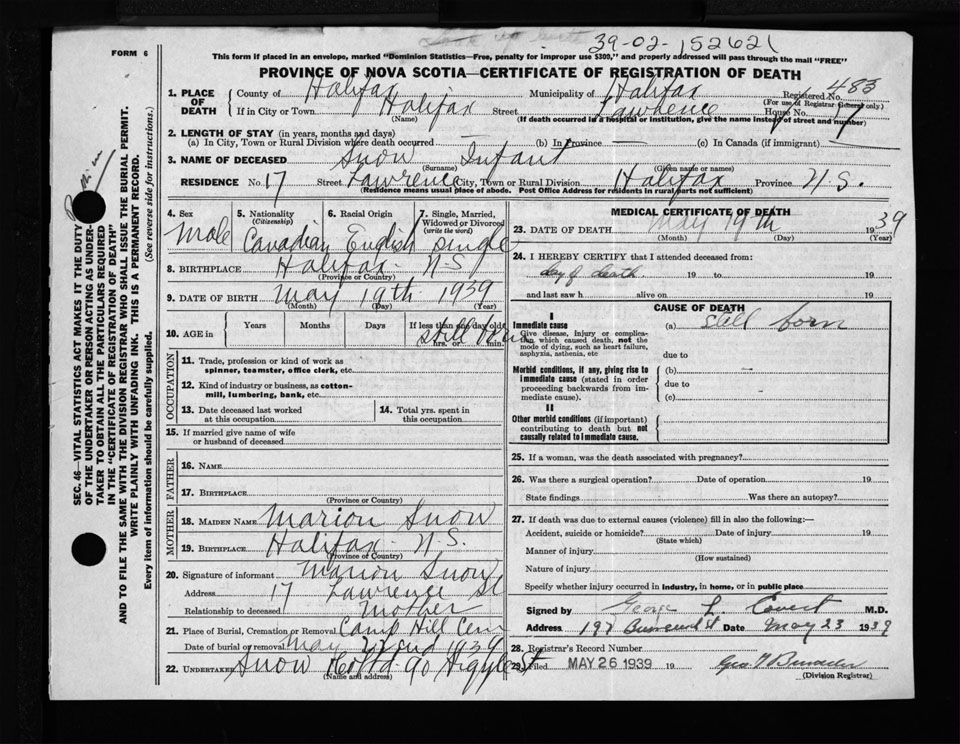 39-02-152621
FORM 6
This form if placed in an envelope, marked "Dominion Statistics—Free, penalty for improper use $300," and properly addressed will pass through the mail "FREE"
PROVINCE OF NOVA SCOTIA—CERTIFICATE OF REGISTRATION OF DEATH
Registered No. 483
(For use of Registrar General only)
1. PLACE OF DEATH
County of Halifax Municipality of Halifax
If in City or Town Halifax Street Lawrence House No. 17
(Name) (If death occurred in a hospital or institution, give the name instead of street and number)
2. LENGTH OF STAY (in years, months and days)
(a) In City, Town or Rural Division where death occurred (b) In Province — (c) In Canada (if immigrant) —
3. NAME OF DECEASED Snow Infant
(Surname) (Given name or names)
RESIDENCE No. 17 Street Lawrence City, Town or Rural Division Halifax Province N.S.
(Residence means usual place of abode. Post Office Address for residents in rural parts not sufficient)
4. Sex Male
5. Nationality (Citizenship) Canadian
6. Racial Origin English
7. Single, Married, Widowed or Divorced (write the word) single
8. BIRTHPLACE Halifax - N.S
(Province or Country)
9. DATE OF BIRTH May 19th 1939
(Month) (Day) (Year)
10. AGE in Years Months Days If less than one day old hrs. or min. still born
OCCUPATION
11. Trade, profession or kind of work as spinner, teamster, office clerk, etc.
12. Kind of industry or business, as cotton-mill, lumbering, bank, etc.
13. Date deceased last worked at this occupation
14. Total yrs. spent in this occupation
15. If married give name of wife or husband of deceased
FATHER
16. Name
17. Birthplace
(Province or Country)
MOTHER
18. Maiden Name Marion Snow
19. Birthplace Halifax - N.S.
(Province or Country)
20. Signature of informant Marion Snow
Address 17 Lawrence St
Relationship to deceased Mother
21. Place of Burial, Cremation or Removal Camp Hill Cem
Date of burial or removal May 22nd 1939
22. Undertaker Snow & Co Ltd 90 Argyle St
(Name and address)
MEDICAL CERTIFICATE OF DEATH
23. DATE OF DEATH May 19th 1939
(Month) (Day) (Year)
24. I HEREBY CERTIFY that I attended deceased from:
day of death 19 to 19
and last saw h alive on 19
CAUSE OF DEATH
I
Immediate cause
Give disease, injury or complication, which caused death, not the mode of dying, such as heart failure, asphyxia, asthenia, etc
(a) still born
due to
Morbid conditions, if any, giving rise to immediate cause (stated in order proceeding backwards from immediate cause).
(b) —
due to
(c)
II
Other morbid conditions (if important) contributing to death but not causally related to immediate cause.
25. If a woman, was the death associated with pregnancy?
26. Was there a surgical operation? Date of operation 19
State findings Was there an autopsy?
27. If death was due to external causes (violence) fill in also the following:—
Accident, suicide or homicide? Date of injury 19
(State which)
Manner of injury
(How sustained)
Nature of injury
Specify whether injury occurred in industry, in home, or in public place
Signed by George L. Covert M.D.
Address 197 Date May 23 1939
28. Registrar's Record Number
29. Filed MAY 26 1939 19
(Division Registrar)
SEC. 46—VITAL STATISTICS ACT MAKES IT THE DUTY OF THE UNDERTAKER OR PERSON ACTING AS UNDERTAKER TO OBTAIN ALL THE PARTICULARS REQUIRED IN THE "CERTIFICATE OF REGISTRATION OF DEATH" AND TO FILE THE SAME WITH THE DIVISION REGISTRAR WHO SHALL ISSUE THE BURIAL PERMIT.
WRITE PLAINLY WITH UNFADING INK. THIS IS A PERMANENT RECORD.
Every item of information should be carefully supplied. (See reverse side for instructions.)